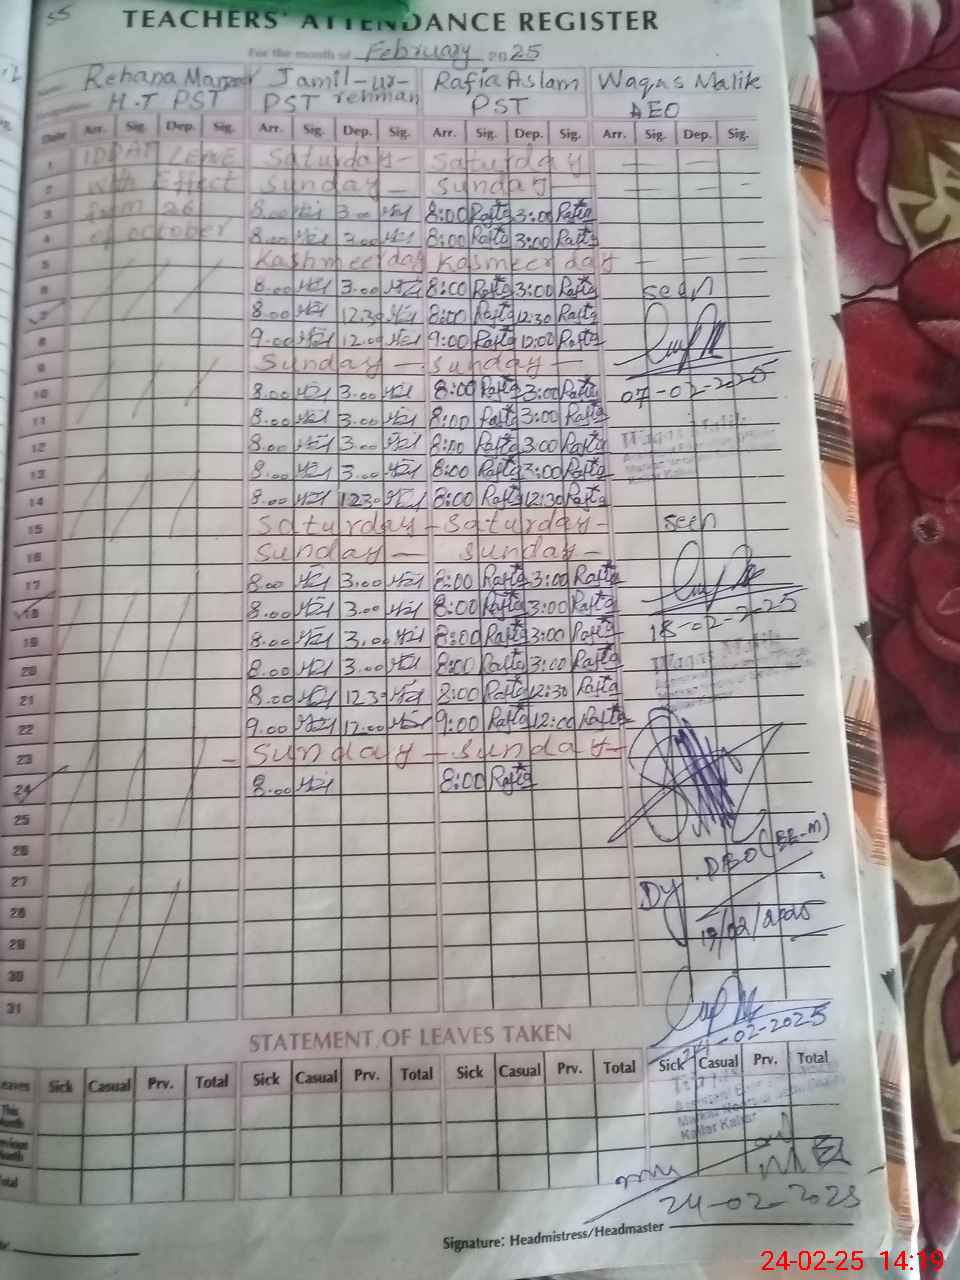 55
TEACHERS' ATTENDANCE REGISTER
For the month of February 2025
Rehana Manzoor Jamil-ur- Rafia Aslam Waqas Malik
H.T PST PST rehman PST AEO
Date Arr. Sig. Dep. Sig. Arr. Sig. Dep. Sig. Arr. Sig. Dep. Sig. Arr. Sig. Dep. Sig.
1 IDDAT LEAVE Saturday - Saturday
2 With Effect Sunday - Sunday
3 from 26 8.00 3.00 8:00 Rafia 3:00 Rafia
4 of october 8.00 3.00 8:00 Rafia 3:00 Rafia
5 Kashmeer day Kasmeer day
6 8.00 3.00 8:00 Rafia 3:00 Rafia seen
7 8.00 12.30 8:00 Rafia 12:30 Rafia
8 9.00 12.00 9:00 Rafia 12:00 Rafia
9 Sunday - Sunday -
10 8.00 3.00 8:00 Rafia 3:00 Rafia 07-02-2025
11 8.00 3.00 8:00 Rafia 3:00 Rafia
12 8.00 3.00 8:00 Rafia 3:00 Rafia Waqas Malik
13 8.00 3.00 8:00 Rafia 3:00 Rafia
14 8.00 12.30 8:00 Rafia 12:30 Rafia
15 Saturday - Saturday - seen
16 Sunday - Sunday -
17 8.00 3.00 8:00 Rafia 3:00 Rafia
18 8.00 3.00 8:00 Rafia 3:00 Rafia
19 8.00 3.00 8:00 Rafia 3:00 Rafia 18-02-2025
20 8.00 3.00 8:00 Rafia 3:00 Rafia Waqas Malik
21 8.00 12.30 8:00 Rafia 12:30 Rafia
22 9.00 12.00 9:00 Rafia 12:00 Rafia
23 - Sunday - Sunday -
24 8.00 8:00 Rafia
25
26 Dy. DEO (EE-M)
27
28 19/02/2025
29
30
31
24-02-2025
STATEMENT OF LEAVES TAKEN
Leaves Sick Casual Prv. Total Sick Casual Prv. Total Sick Casual Prv. Total Sick Casual Prv. Total
This Month
Previous Month
Total
Kallar Kahar
24-02-2025
Signature: Headmistress/Headmaster
24-02-25 14:19